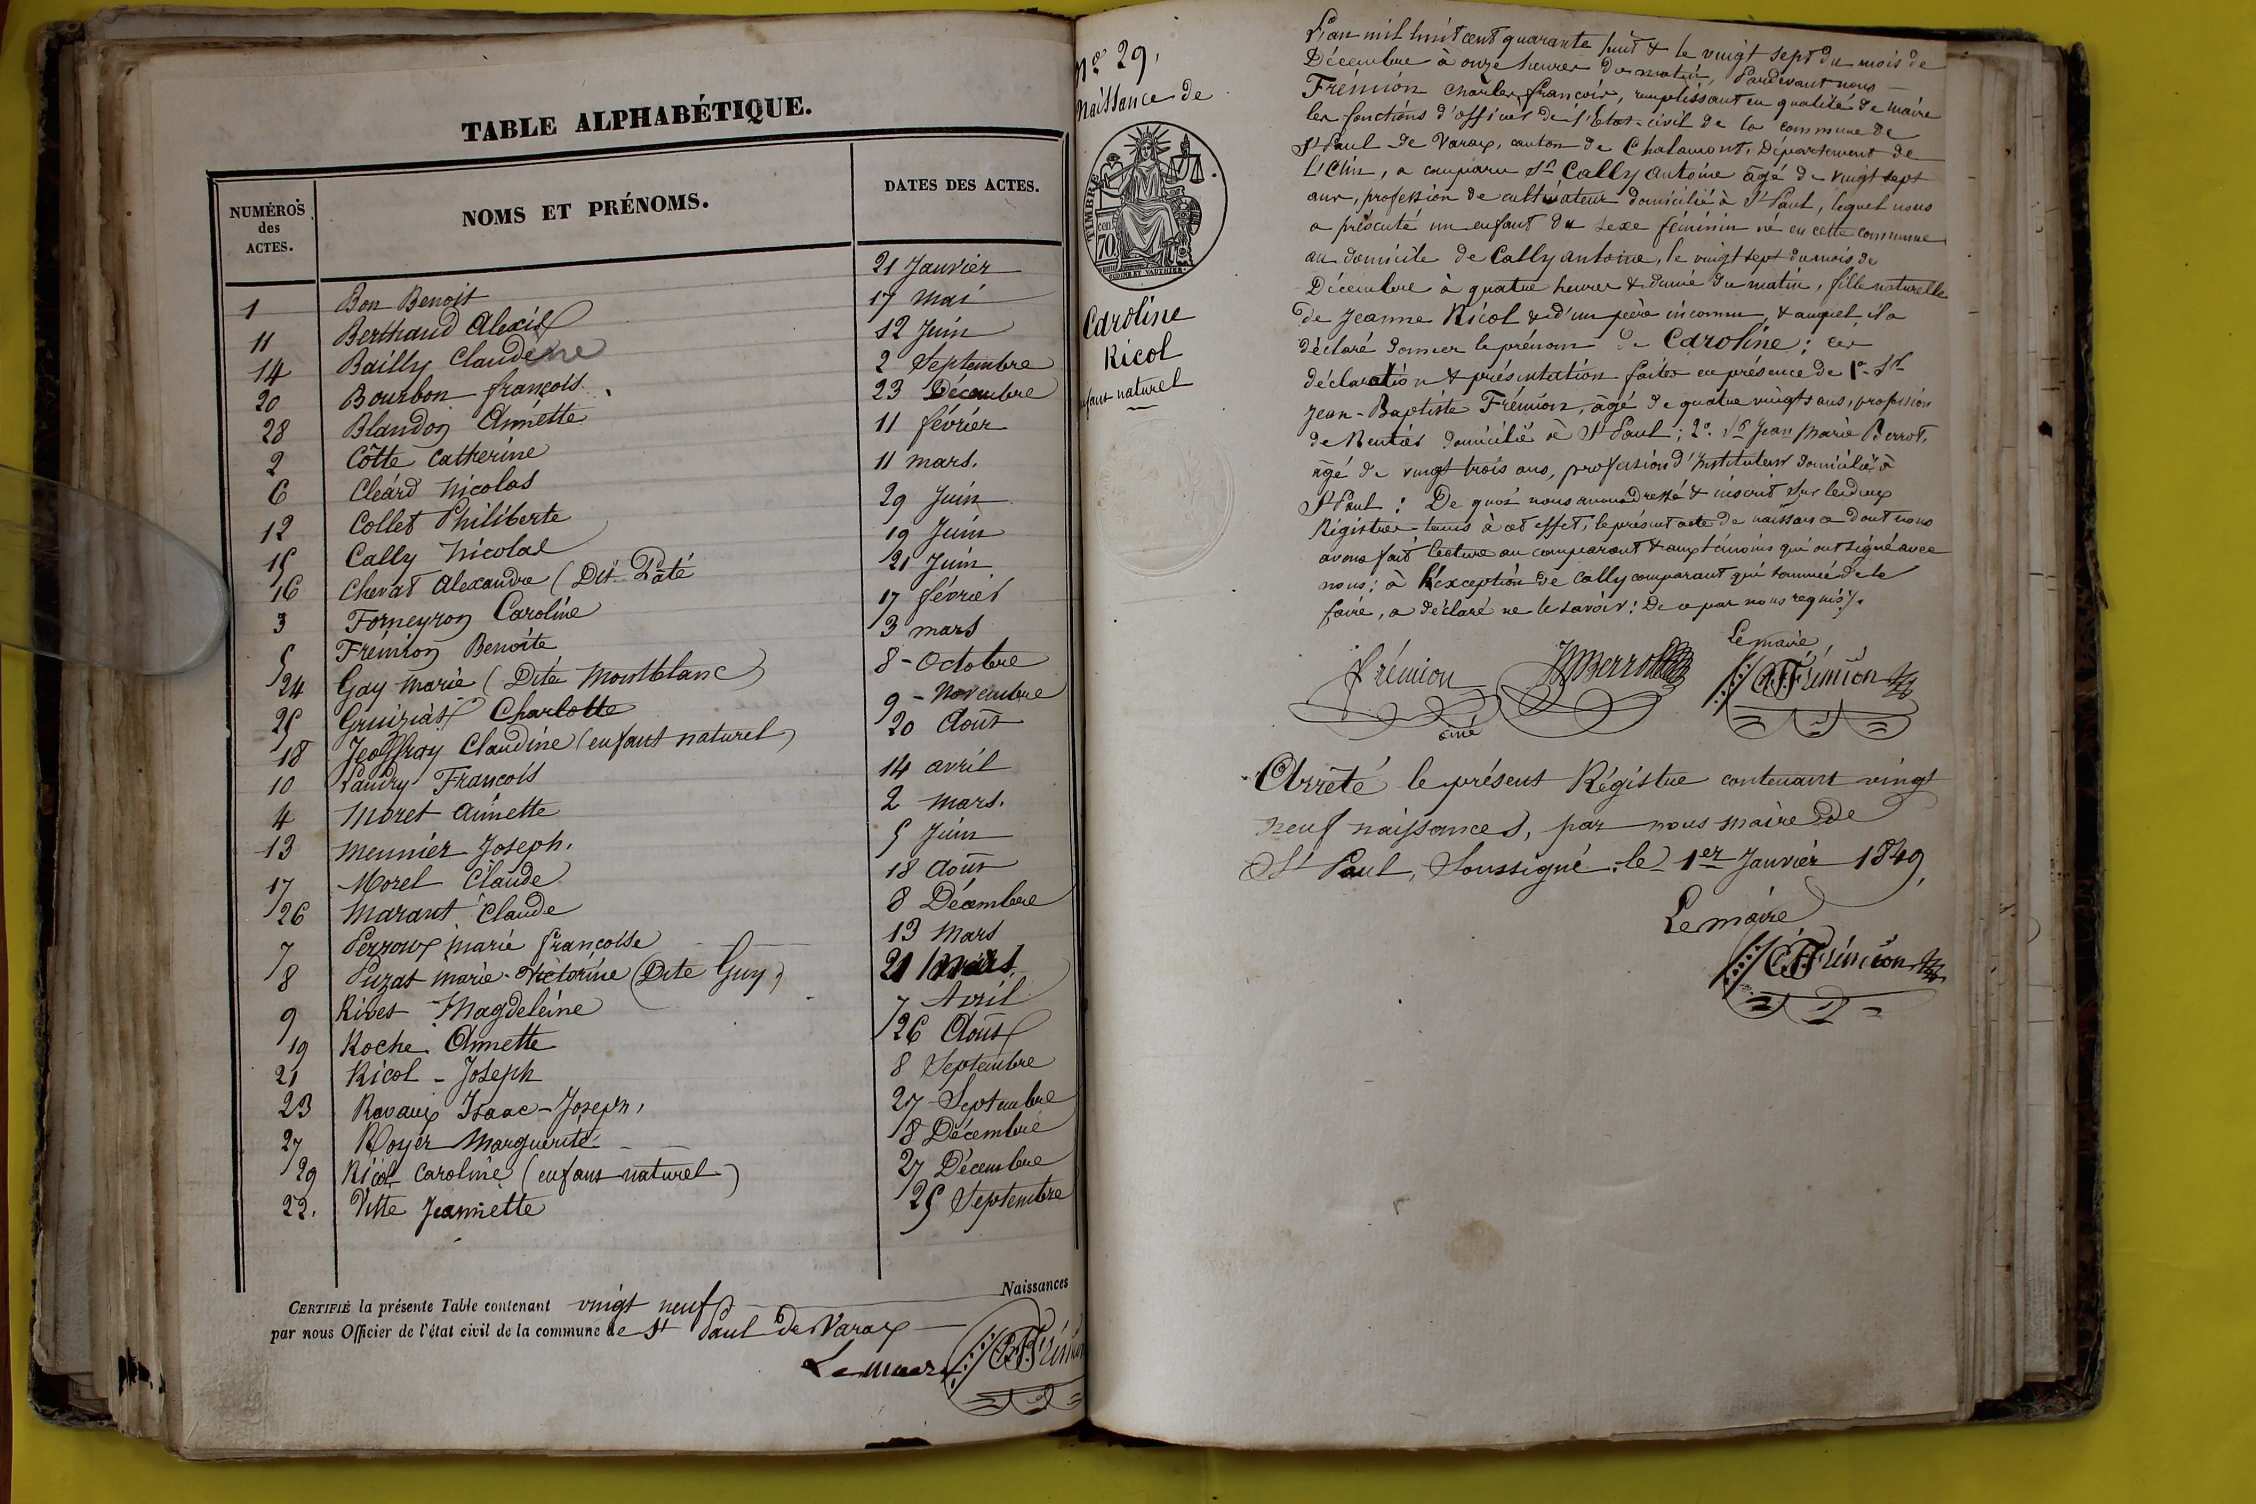 TABLE ALPHABÉTIQUE.
NUMÉROS des ACTES. NOMS ET PRÉNOMS. DATES DES ACTES.
1 Bon Benoit 21 Janvier
11 Berthaud Alexis 17 Mai
14 Bailly Claudine 12 Juin
20 Bourbon françois 2 Septembre
28 Blandon Annette 23 Décembre
2 Côtte Catherine 11 février
6 Cléard Nicolas 11 mars.
12 Collet Philiberte 29 Juin
15 Cally Nicolas 19 Juin
16 Chevat Alexandre (Dit Pâté 21 Juin
3 Forneyron Caroline 17 février
5 Frémion Benoite 3 mars
24 Gay Marie (Dite Montblanc) 8 - Octobre
25 Charlotte 9 - Novembre
18 Jeoffray Claudine (enfant naturel) 20 Août
10 Landry François 14 avril
4 Moret Annette 2 mars.
13 Meunier Joseph. 5 Juin
17 Morel Claude 18 Août
26 Marant Claude 8 Décembre
7 Perroux marie françoise 13 Mars
8 Puzat marie-Victorine (Dite Guy) 21 Mars.
9 Rivet Magdeleine 7 Avril
19 Roche Annette 26 Août
21 Ricol - Joseph 8 Septembre
23 Ravaux Isaac-Joseph, 27 Septembre
27 Royer Marguerite 8 Décembre
29 Ricol Caroline (enfant naturel) 27 Décembre
22. Vitte Jeannette 25 Septembre
CERTIFIÉ la présente Table contenant vingt neuf Naissances
par nous Officier de l'état civil de la commune de St Paul de Varax
Le maire Frémion
No 29,
Naissance de
TIMBRE
70 cent
Caroline
Ricol
enfant naturel
L'an mil huit cent quarante huit & le vingt sept du mois de
Décembre à onze heures du matin, Pardevant nous
Frémion Charles françois, remplissant en qualité de maire
les fonctions d'officier de l'Etat-civil de la commune de
St Paul de Varax, canton de Chalamont, Département de
L'Ain, a comparu Sr Cally Antoine âgé de vingt sept
ans, profession de cultivateur domicilié à St Paul, lequel nous
a présenté un enfant du sexe féminin né en cette commune
au domicile de Cally antoine, le vingt sept du mois de
Décembre à quatre heures & demie du matin, fille naturelle
de Jeanne Ricol & d'un père inconnu, & auquel il a
déclaré donner le prénom de Caroline; ces
déclaration & présentation faites en présence de 1o Sr
Jean-Baptiste Frémion, âgé de quatre vingts ans, profession
de Rentier domicilié à St Paul; 2o. Sr Jean Marie Berrot,
âgé de vingt trois ans, profession d'Instituteur domicilié à
St Paul: De quoi nous avons dressé & inscrit sur les deux
Régistres tenus à cet effet, le présent acte de naissance dont nous
avons fait lecture au comparant & aux témoins qui ont signé avec
nous; à l'exception de Cally comparant qui sommé de le
faire, a déclaré ne le savoir: De ce par nous requis ./.
Le maire
frémion JMBerrot CFFrémion
ainé
Arrêté le présent Régistre contenant vingt
neuf naissances, par nous maire de
St Paul, Soussigné. le 1er Janvier 1849,
Le maire
CFFrémion